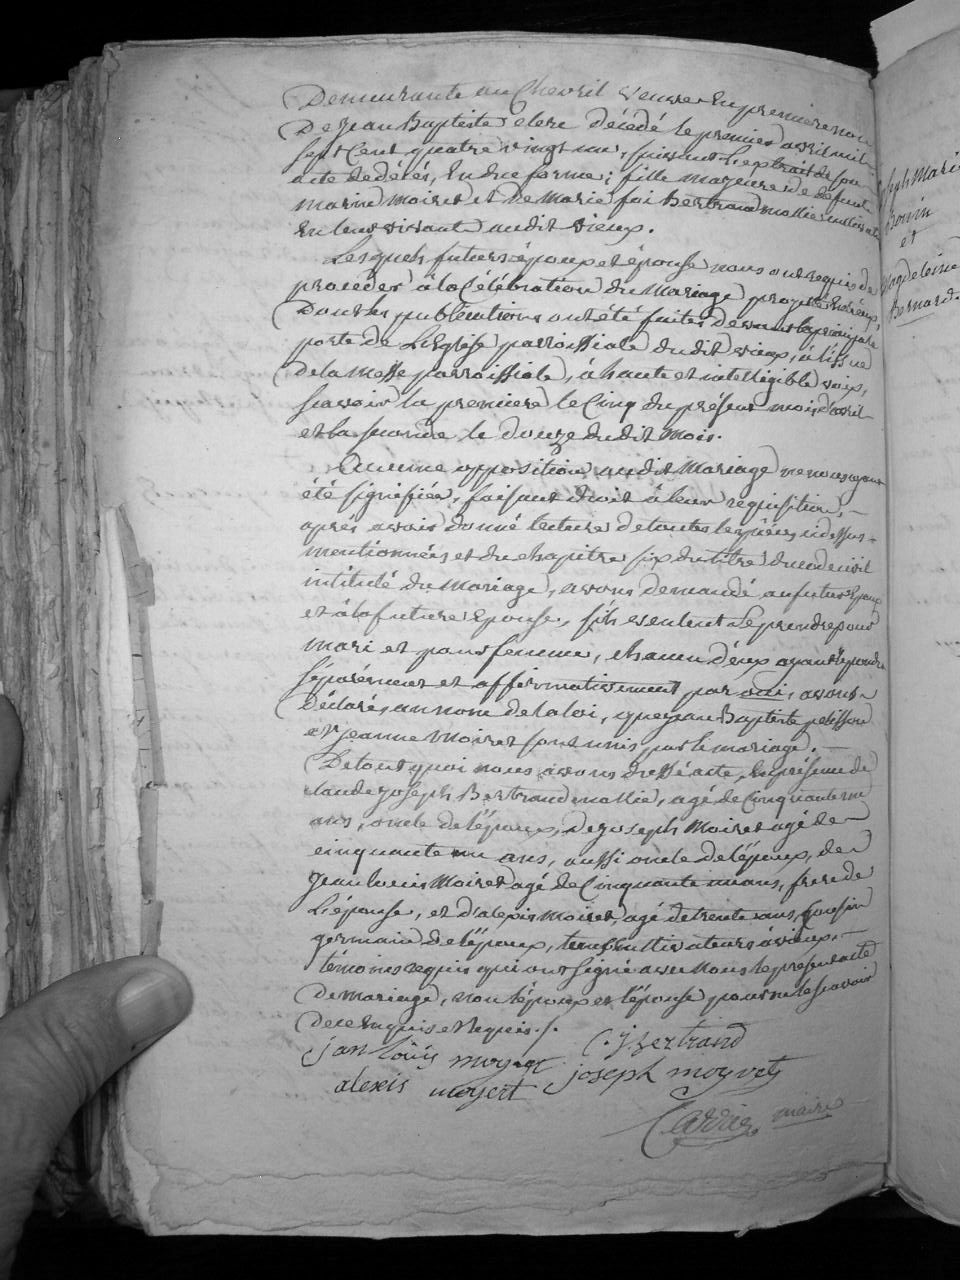 Demeurante au Chevril veuve En premiere noce
De jean Baptiste clerc décédé le premier avril mil
sept Cent quatre vingt un, suivant l'extrait de son
acte de décés, En due forme; fille majeure de defunt
marin moiret et De Marie foi Bertrand mollie cultivat
En leur vivant audit vieux.
Lesquels futurs époux et épouse nous ont requis de
proceder à la Célébration du Mariage projetté
Dont les publications ont été faites devant la principale
porte de L'Eglise parroissiale dudit vieux, à l'issue
de la Messe parroissiale, à haute et intelligible voix,
scavoir la premiere le Cinq du présent mois d'avril
et la seconde le douze dudit Mois.
Aucune opposition audit Mariage ne nous ayant
été signifiée, faisant droit à leur requisition,
aprés avoir donné lecture de toutes les piéces ci dessus
mentionnées et du chapitre six du titre du code civil
intitulé du Mariage, avons demandé au futur Epoux
et à la future Epouse, s'ils veulent se prendre pour
mari et pour femme, chacun d'eux ayant répondu
séparément et affirmativement, par oui, avons
Déclaré, au nom de la loi, que jean Baptiste pelisson
et jeanne Moiret sont unis par le mariage.
De tout quoi nous avons dressé acte, En présence de
claude joseph Bertrand mollie, agé de Cinquante
ans, oncle de l'époux, De joseph Moiret agé de
cinquante un ans, aussi oncle de l'époux, de
jean louis Moiret agé de Cinquante un ans, frere de
L'épouse, et d'alexis moiret, agé de trente ans, Cousin
germain de l'époux, tous cultivateurs à vieux,
témoins requis qui ont signé avec Nous le présent acte
De mariage, non l'époux et l'épouse pour ne le scavoir
De ce Enquis et Requis.
jan louis moyret C. j Bertrand
alexis moyert joseph moyret
maire
joseph Marie
Bouvin
et
Magdeleine
Bernard